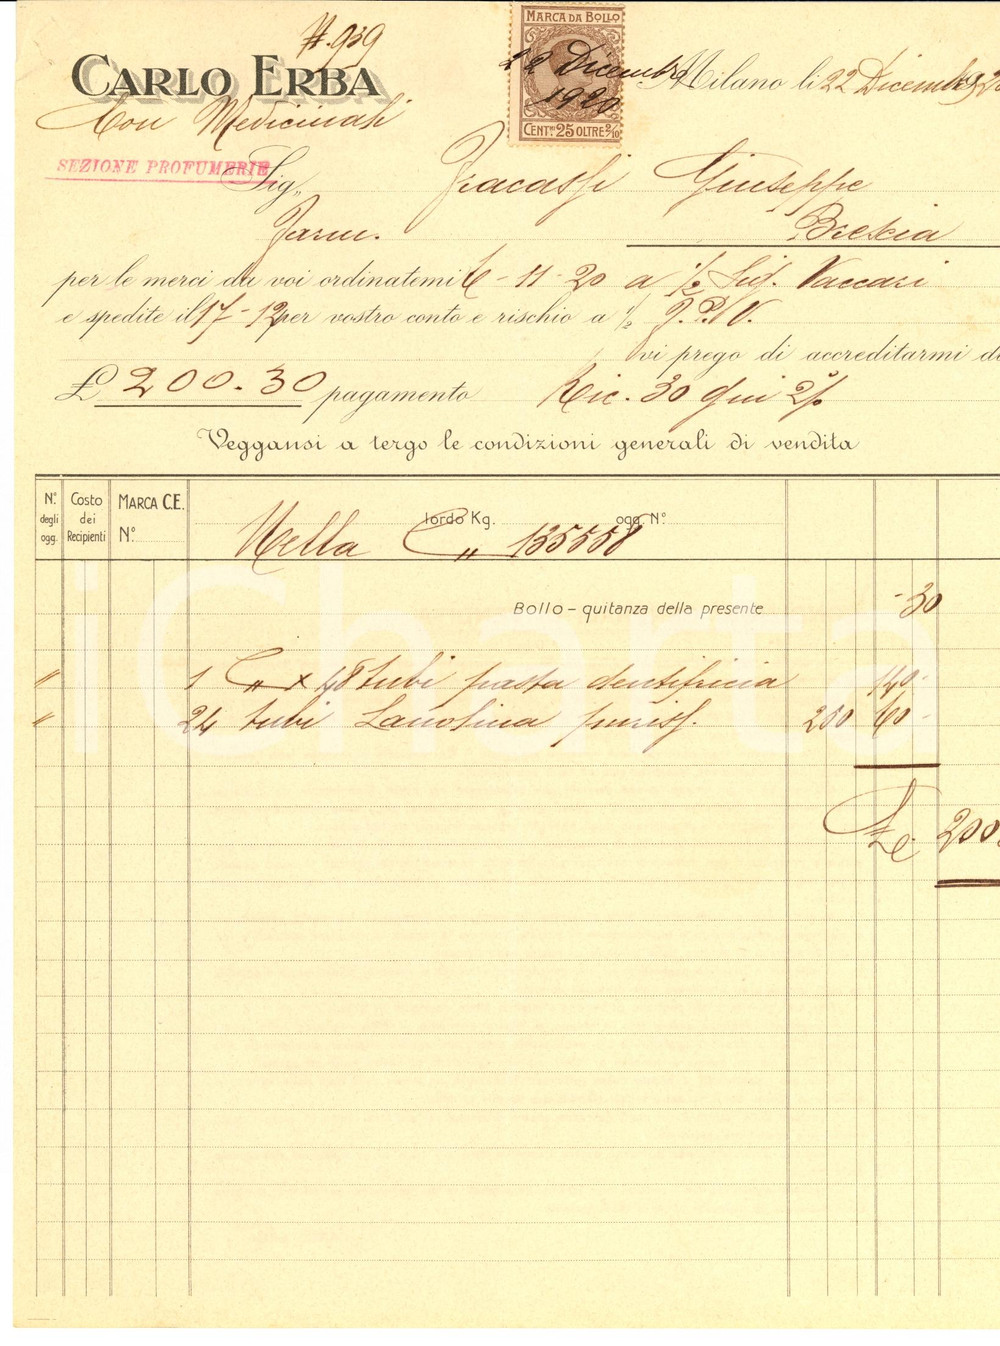 N. 939
CARLO ERBA
Con Medicinali
SEZIONE PROFUMERIE
MARCA DA BOLLO
22 Dicembre
1920
CENT.MI 25 OLTRE 2/10
Milano li 22 Dicembre 1920
Sig. Fracassi Giuseppe
Farm. Brescia
per le merci da voi ordinatemi 6-11-20 a 1/2 Sig. Vaccari
e spedite il 17-12 per vostro conto e rischio a 1/2 G.P.V.
vi prego di accreditarmi di
£ 200.30 pagamento Ric. 30 gni 2%
Veggansi a tergo le condizioni generali di vendita
N.° degli ogg. Costo dei Recipienti MARCA C.E. N.°
Nella C" lordo Kg. 135558 ogg. N.°
Bollo - quitanza della presente -30
" 1 C" x 48 tubi pasta dentifricia 140-
" 24 tubi Lanolina puriss. 250 60-
L. 200.
iCharta